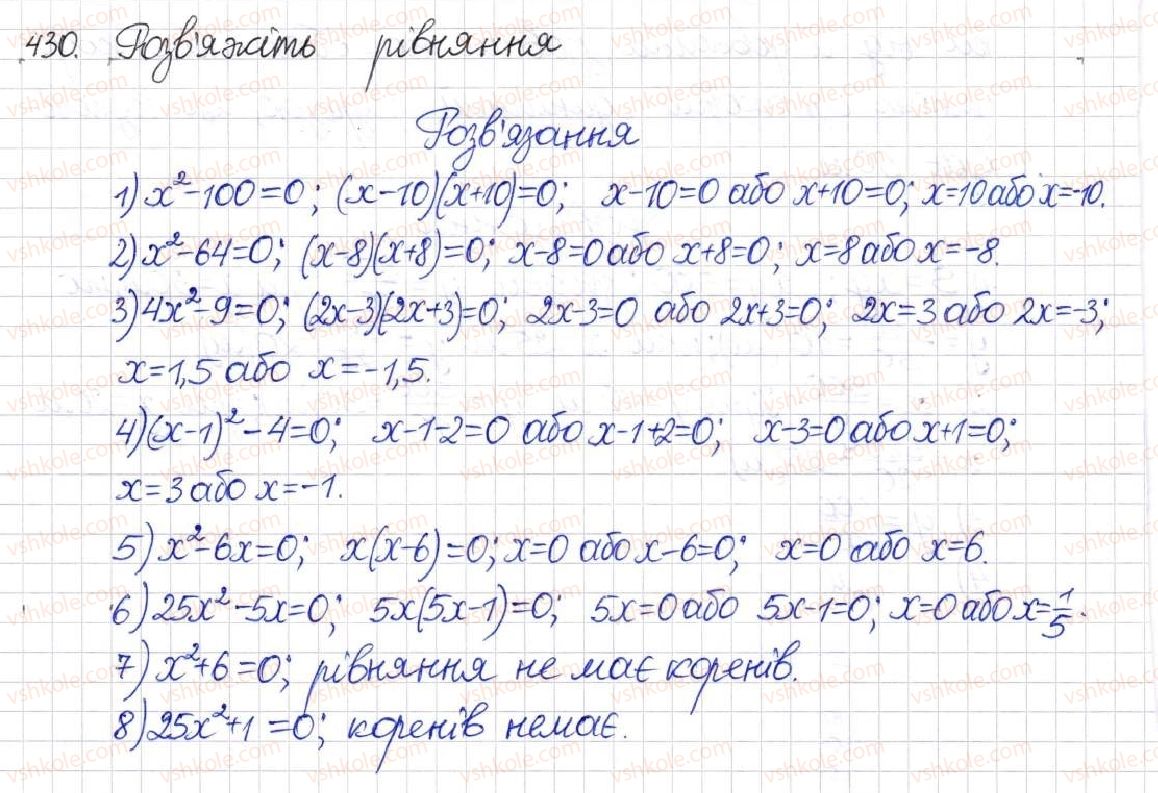 430. Розв'яжіть рівняння
Розв'язання
1) x²-100=0; (x-10)(x+10)=0; x-10=0 або x+10=0; x=10 або x=-10.
2) x²-64=0; (x-8)(x+8)=0; x-8=0 або x+8=0; x=8 або x=-8.
3) 4x²-9=0; (2x-3)(2x+3)=0; 2x-3=0 або 2x+3=0; 2x=3 або 2x=-3;
x=1,5 або x=-1,5.
4) (x-1)²-4=0; x-1-2=0 або x-1+2=0; x-3=0 або x+1=0;
x=3 або x=-1.
5) x²-6x=0; x(x-6)=0; x=0 або x-6=0; x=0 або x=6.
6) 25x²-5x=0; 5x(5x-1)=0; 5x=0 або 5x-1=0; x=0 або x=1/5.
7) x²+6=0; рівняння не має коренів.
8) 25x²+1=0; коренів немає.